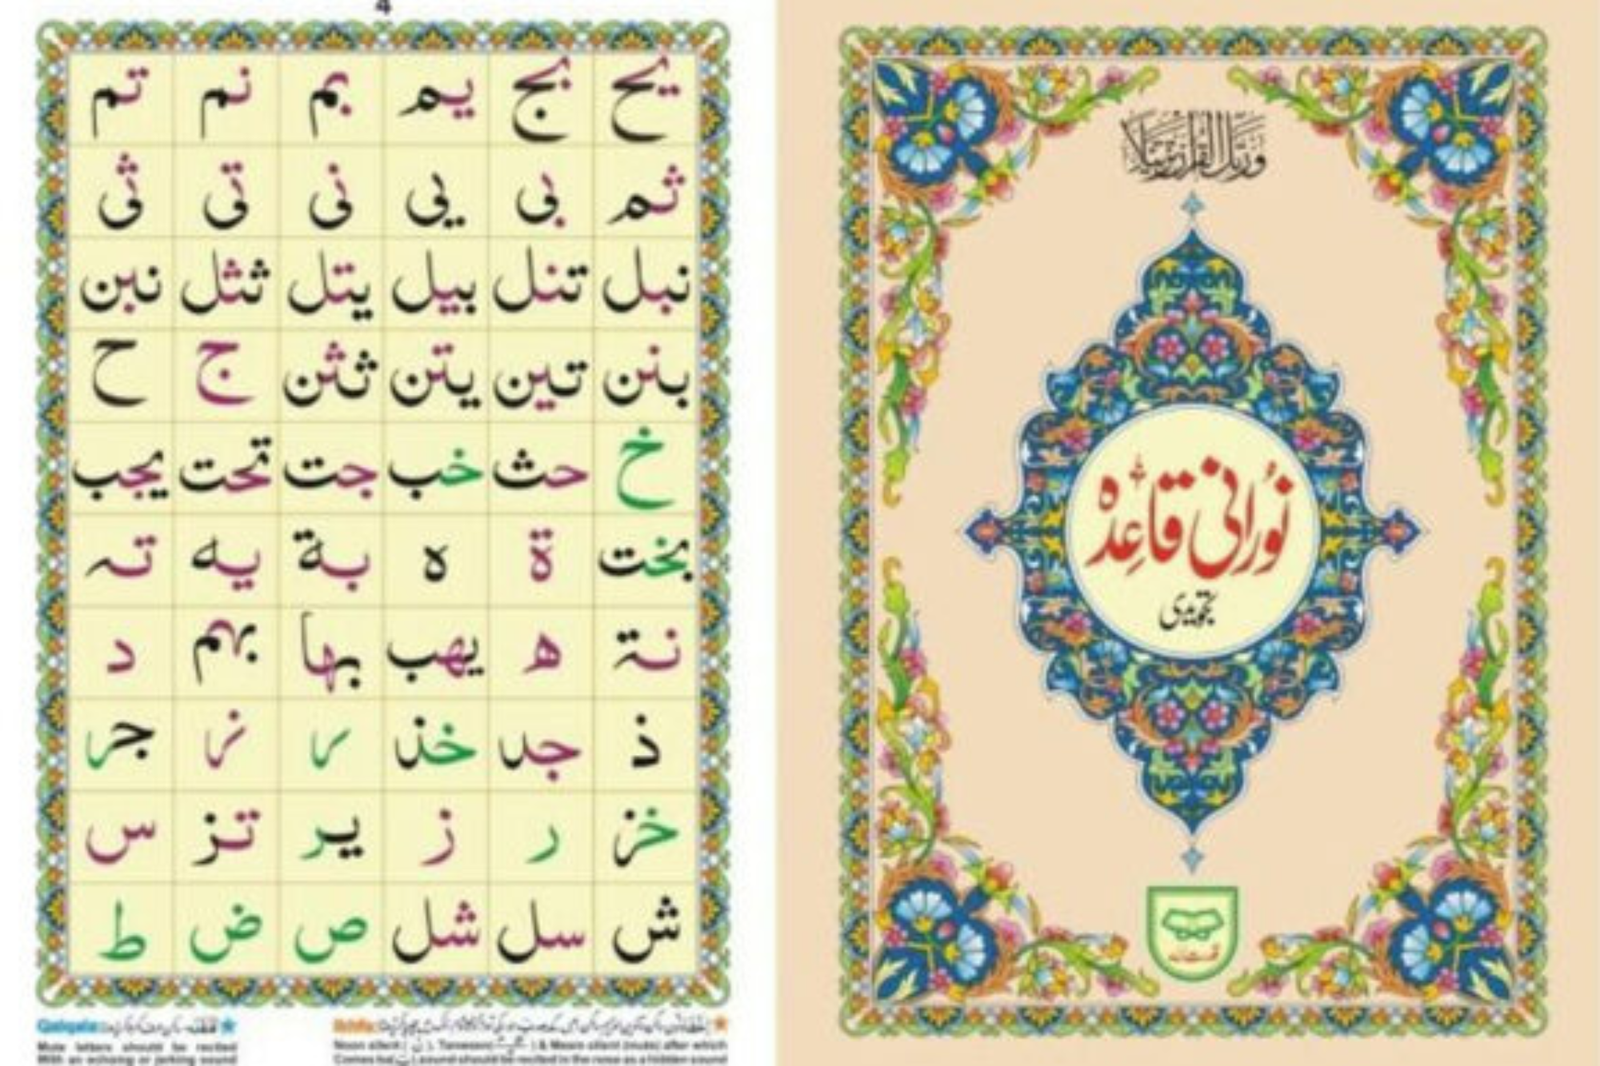 4
يح بج يم بم نم تم
ثم بى يى نى تى ثى
نبل تنل بيل يتل ثثل نبن
بنن تين يتن ثثن ج ح
خ حث خب جت تحت يجب
بخت ة ه بة يه تہ
نة ھ يهب بها بهم د
ذ جد خذ ر نر جر
خز ر ز ير تز س
ش سل شل ص ض ط
Qalqala:
Mute letters should be recited
With an echoing or jerking sound
Ikhfa:
Noon silent ( نْ ), Tanween( ) & Meem silent (mute) after which
Comes ba( ب ) sound should be recited in the nose as a hidden sound
ورتل القرآن ترتيلا
نُورانی قاعِدہ
تجویدی